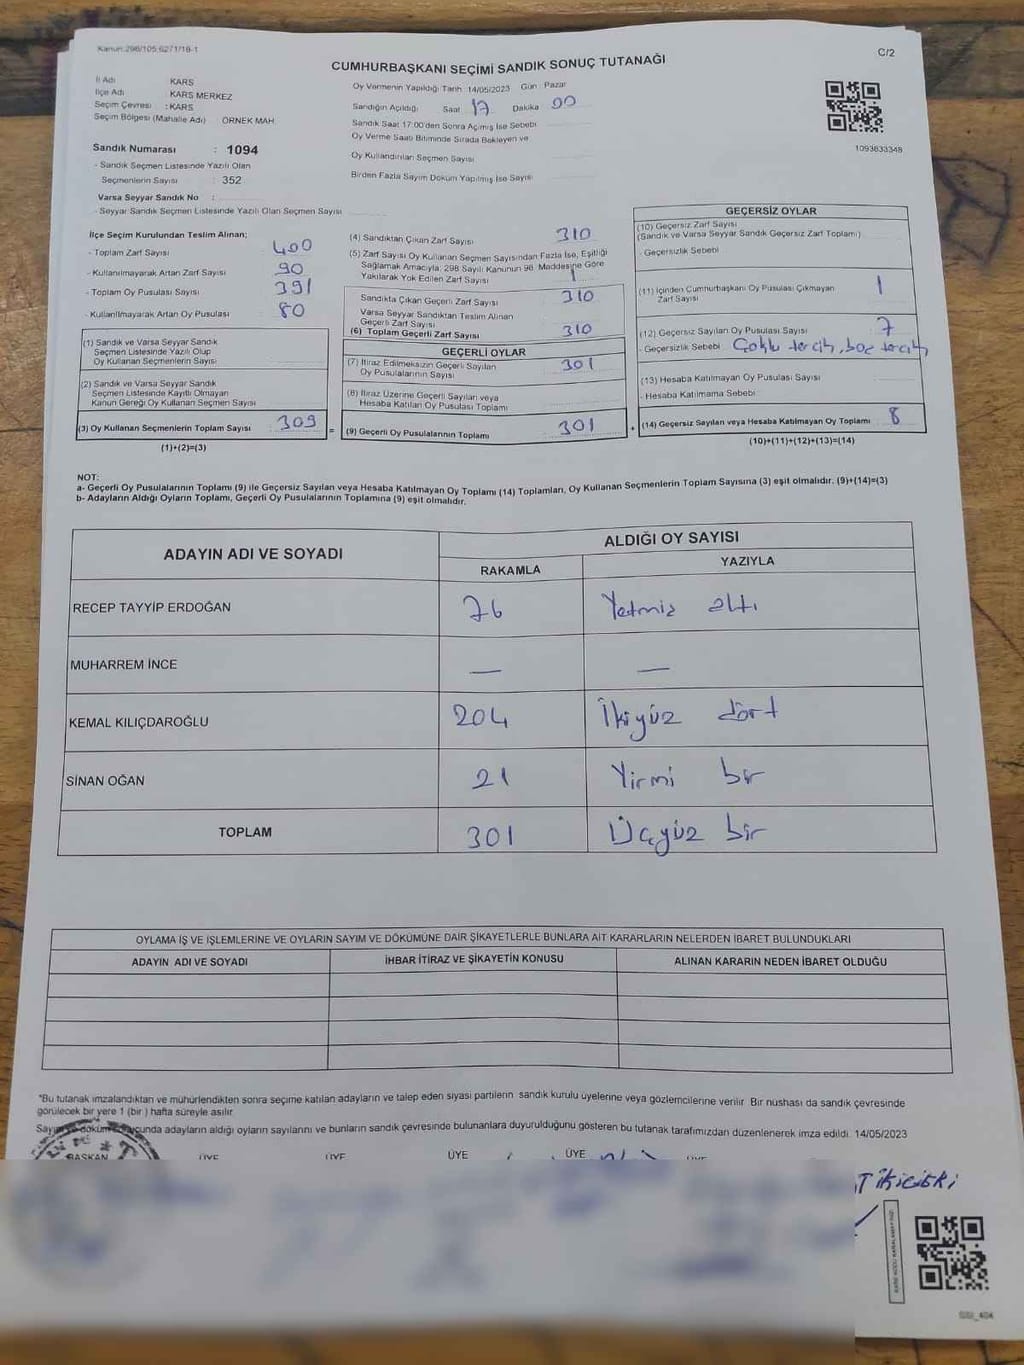 Kanun:298/105,6271/18-1
C/2
CUMHURBAŞKANI SEÇİMİ SANDIK SONUÇ TUTANAĞI
İl Adı KARS
İlçe Adı KARS MERKEZ
Seçim Çevresi : KARS
Seçim Bölgesi (Mahalle Adı) ÖRNEK MAH.
Sandık Numarası : 1094
- Sandık Seçmen Listesinde Yazılı Olan
Seçmenlerin Sayısı : 352
Varsa Seyyar Sandık No :
- Seyyar Sandık Seçmen Listesinde Yazılı Olan Seçmen Sayısı
Oy Vermenin Yapıldığı Tarih 14/05/2023 Gün : Pazar
Sandığın Açıldığı Saat 17 Dakika 00
Sandık Saat 17:00'den Sonra Açmış İse Sebebi
Oy Verme Saati Bitiminde Sırada Bekleyen ve
Oy Kullandırılan Seçmen Sayısı
Birden Fazla Sayım Döküm Yapılmış İse Sayısı
1093633348
İlçe Seçim Kurulundan Teslim Alınan;
- Toplam Zarf Sayısı 400
- Kullanılmayarak Artan Zarf Sayısı 90
- Toplam Oy Pusulası Sayısı 391
- Kullanılmayarak Artan Oy Pusulası 80
(1) Sandık ve Varsa Seyyar Sandık
Seçmen Listesinde Yazılı Olup
Oy Kullanan Seçmenlerin Sayısı
(2) Sandık ve Varsa Seyyar Sandık
Seçmen Listesinde Kayıtlı Olmayan
Kanun Gereği Oy Kullanan Seçmen Sayısı
(3) Oy Kullanan Seçmenlerin Toplam Sayısı 309
(1)+(2)=(3)
(4) Sandıktan Çıkan Zarf Sayısı 310
(5) Zarf Sayısı Oy Kullanan Seçmen Sayısından Fazla İse, Eşitliği
Sağlamak Amacıyla, 298 Sayılı Kanunun 98. Maddesine Göre
Yakılarak Yok Edilen Zarf Sayısı 1
Sandıkta Çıkan Geçerli Zarf Sayısı 310
Varsa Seyyar Sandıktan Teslim Alınan
Geçerli Zarf Sayısı
(6) Toplam Geçerli Zarf Sayısı 310
GEÇERLİ OYLAR
(7) İtiraz Edilmeksizin Geçerli Sayılan
Oy Pusulalarının Sayısı 301
(8) İtiraz Üzerine Geçerli Sayılan veya
Hesaba Katılan Oy Pusulası Toplamı
= (9) Geçerli Oy Pusulalarının Toplamı 301
GEÇERSİZ OYLAR
(10) Geçersiz Zarf Sayısı
(Sandık ve Varsa Seyyar Sandık Geçersiz Zarf Toplamı)
- Geçersizlik Sebebi
(11) İçinden Cumhurbaşkanı Oy Pusulası Çıkmayan
Zarf Sayısı 1
(12) Geçersiz Sayılan Oy Pusulası Sayısı 7
- Geçersizlik Sebebi Çoklu tercih, boş tercih
(13) Hesaba Katılmayan Oy Pusulası Sayısı
- Hesaba Katılmama Sebebi
+ (14) Geçersiz Sayılan veya Hesaba Katılmayan Oy Toplamı 8
(10)+(11)+(12)+(13)=(14)
NOT:
a- Geçerli Oy Pusulalarının Toplamı (9) ile Geçersiz Sayılan veya Hesaba Katılmayan Oy Toplamı (14) Toplamları, Oy Kullanan Seçmenlerin Toplam Sayısına (3) eşit olmalıdır. (9)+(14)=(3)
b- Adayların Aldığı Oyların Toplamı, Geçerli Oy Pusulalarının Toplamına (9) eşit olmalıdır.
ADAYIN ADI VE SOYADI ALDIĞI OY SAYISI
RAKAMLA YAZIYLA
RECEP TAYYİP ERDOĞAN 76 Yetmiş altı
MUHARREM İNCE — —
KEMAL KILIÇDAROĞLU 204 İkiyüz dört
SİNAN OĞAN 21 Yirmi bir
TOPLAM 301 Üçyüz bir
OYLAMA İŞ VE İŞLEMLERİNE VE OYLARIN SAYIM VE DÖKÜMÜNE DAİR ŞİKAYETLERLE BUNLARA AİT KARARLARIN NELERDEN İBARET BULUNDUKLARI
ADAYIN ADI VE SOYADI İHBAR İTİRAZ VE ŞİKAYETİN KONUSU ALINAN KARARIN NEDEN İBARET OLDUĞU
*Bu tutanak imzalandıktan ve mühürlendikten sonra seçime katılan adayların ve talep eden siyasi partilerin sandık kurulu üyelerine veya gözlemcilerine verilir. Bir nüshası da sandık çevresinde
görülecek bir yere 1 (bir ) hafta süreyle asılır.
Sayım ve döküm sonucunda adayların aldığı oyların sayılarını ve bunların sandık çevresinde bulunanlara duyurulduğunu gösteren bu tutanak tarafımızdan düzenlenerek imza edildi. 14/05/2023
BAŞKAN ÜYE ÜYE ÜYE ÜYE ÜYE